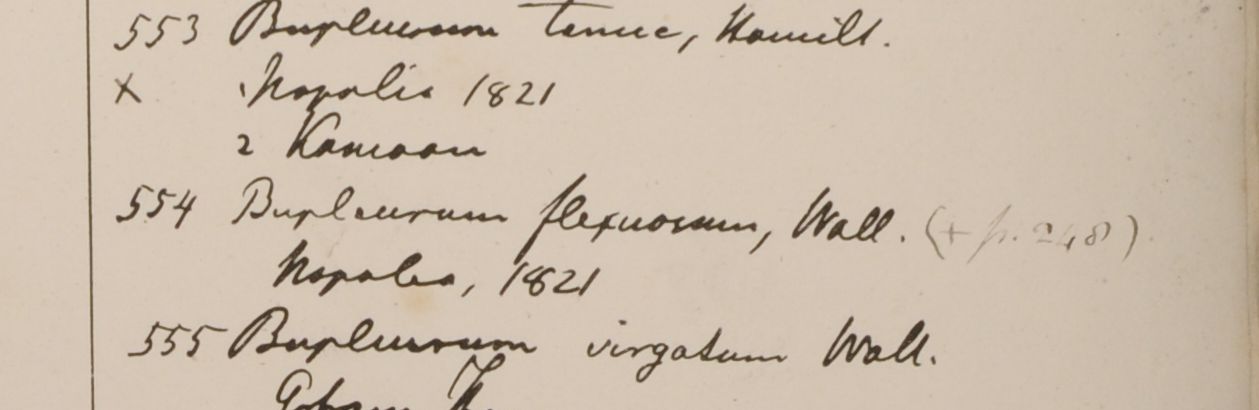 553 Bupleurum tenue, Hamilt.
x 1 Napalia 1821
2 Kamaon
554 Bupleurum flexuosum, Wall. (+ p. 248)
Napalia, 1821
555 Bupleurum virgatum Wall.